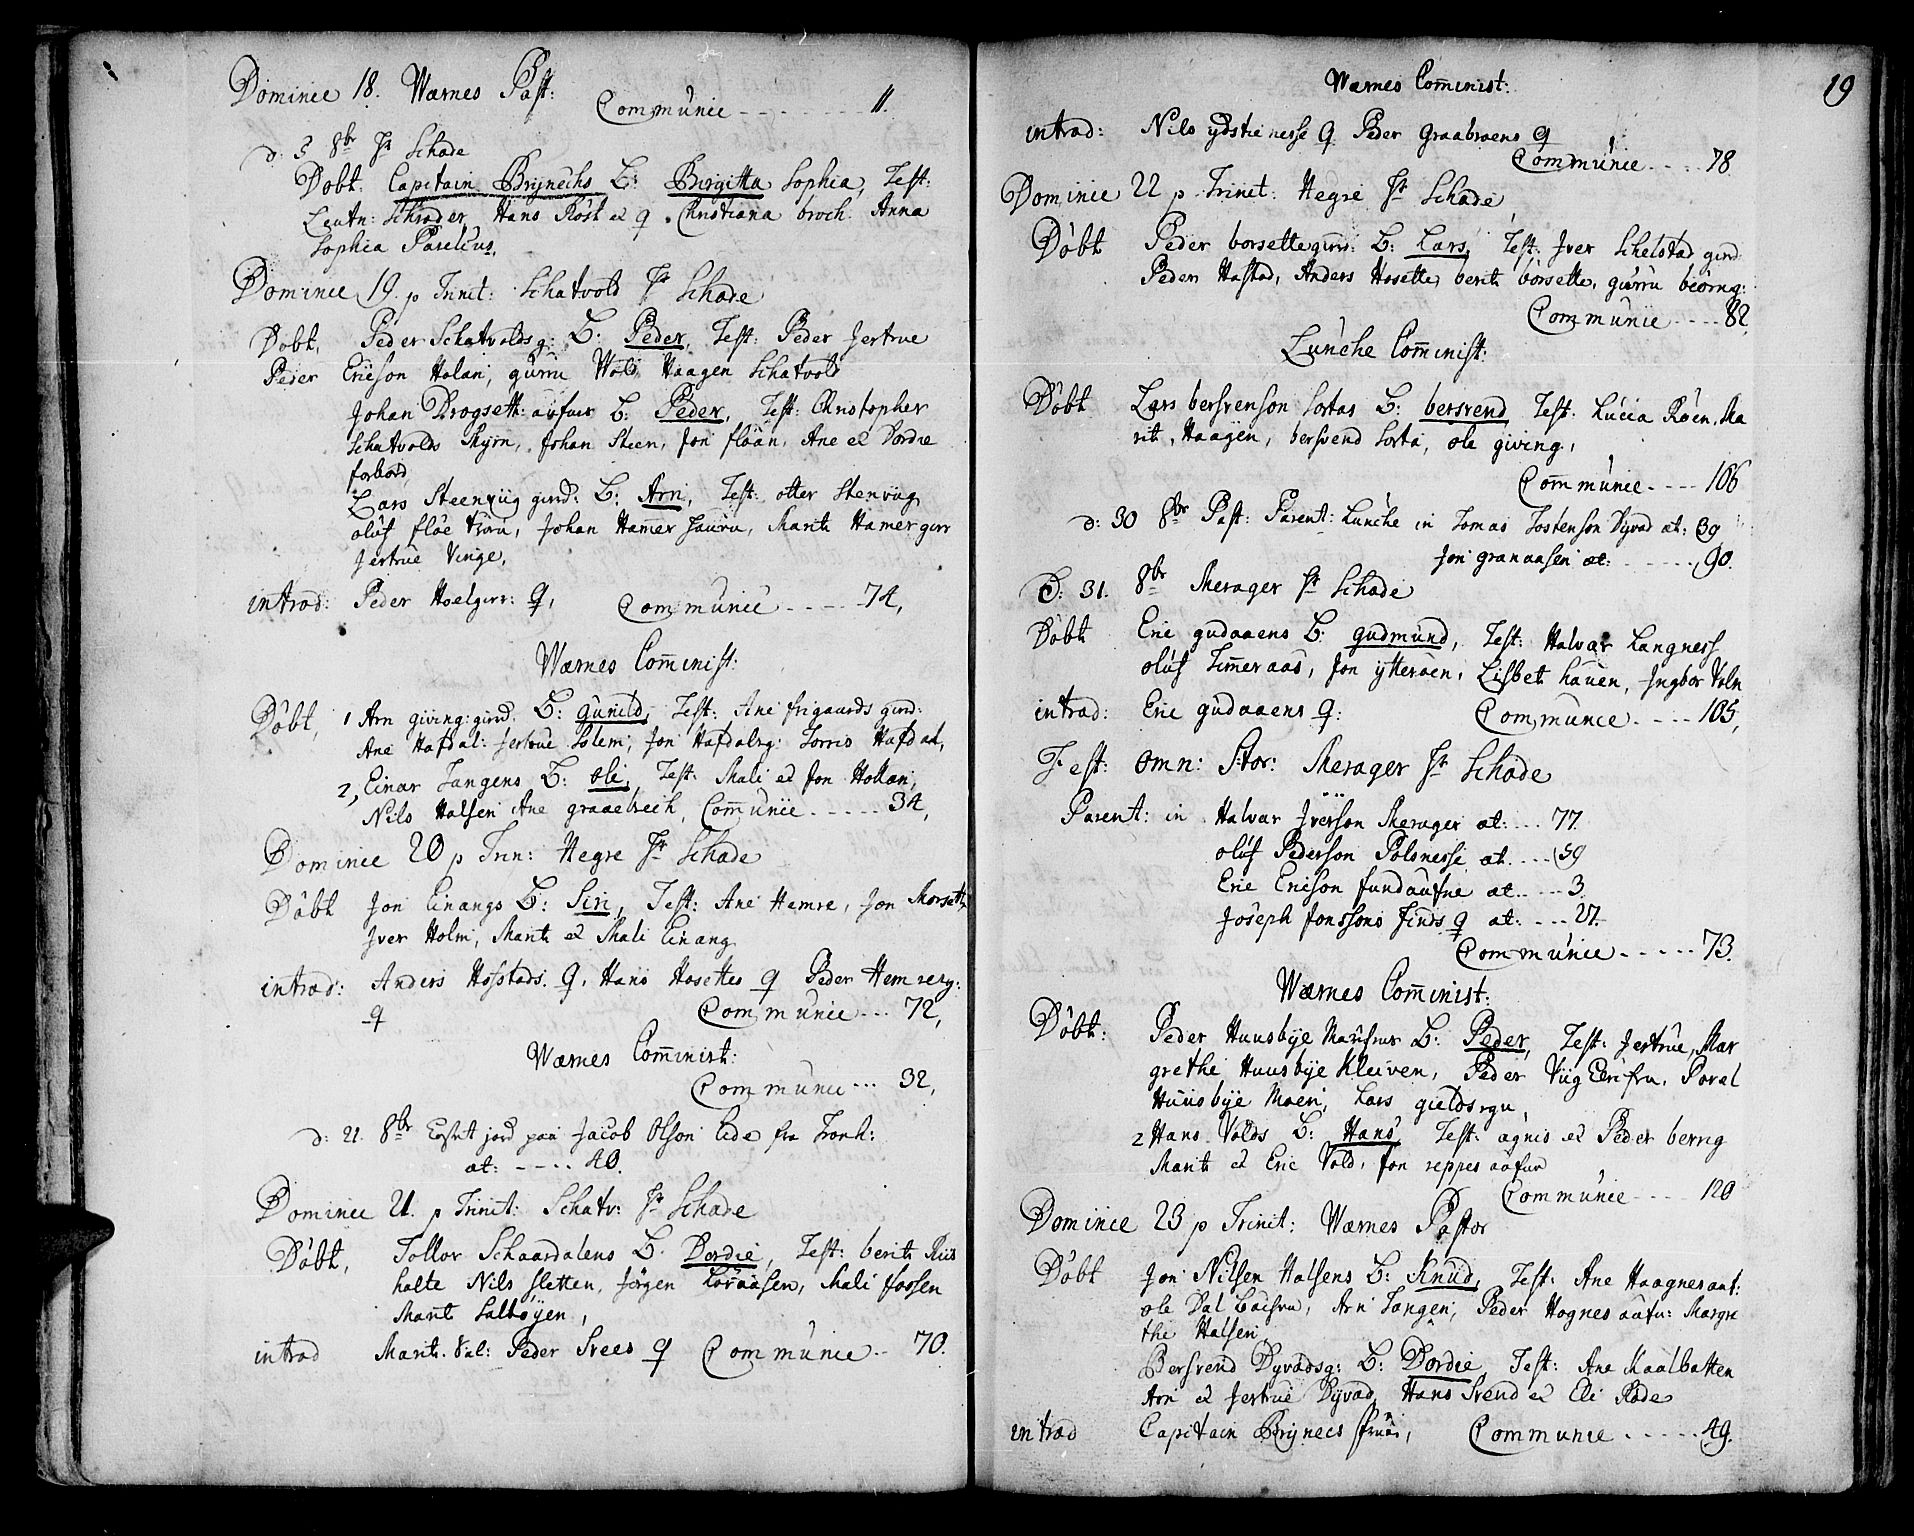 Dominic 18. Wærnes Past:
Communic - - - - - - - - 11.
d. 5 8br Hr Schade
Døbt. Capitain Brynechs B: Birgitta Sophia, Test:
Leutn: Schrøder, Hans Røst et q. Christiana broch. Anna
Sophia Parelius.
Dominic 19. p Trinit: Schatvold Hr Schade
Døbt. Peder Schatvoldsg: B: Peder, Test: Peder Jertrue
Peder Ericson Holan, gurru Wold Haagen Schatvold
Johan Drogseth: aufuer B: Peder, Test: Christopher
Schatvolds Skjrn, Johan Steen, Jon fløan, Ane et Dordie
forbord
Lars Steenviig gind: B: Arn, Test: otter Stenvug,
oluf fløe, Johan Hamer, Marit Hamer
Jertrue Vinge,
introd: Peder Hoelgirr: q, Communic - - - - 74,
Wærnes Comminist:
Døbt, 1 Arn giving gind. B: Gunild, Test: Ane frigaards gind:
Ane Hafdal: Jertrue Solem, Jon Hafdalsg: Torris Hafdal,
2, Einar Tangens B: ole, Test: Mali et Jon Hollan,
Nils Halsen Ane graaelbech, Communic - - - - - 34,
Dominic 20 p Trin: Hegre Hr Schade
Døbt Jon Einangs B: Siri, Test: Ane Hemre, Jon Morseth
Iver Holm, Marit et Mali Einang
introd: Anders Hofstads. q. Hans Hosettes q Peder Hemreng:
q Communic - - - 72,
Wærnes Comminist:
Communic - - - 32,
d: 21. 8br Castet jord paa Jacob Olson Lide fra Tronh:
æt: - - - - 40.
Dominic 21. p Trinit: Schatv: Hr Schade
Døbt, Tollor Schaardalens B. Dordie, Test: berit Riis
halte Nils Sletten, Jørgen, Mali fossen
Marit Salbøyen,
introd Marit. Val: Peder Svees q Communic - - 70.
19
Wærnes Comminist:
introd: Nils ydstienesse q Peder Graabroens q
Communic - - - - 78
Dominic 22 p Trinit: Hegre Hr Schade
Døbt Peder borsettegind: B: Lars, Test: Iver Schelstad gind
Peder Hastad, Anders Hosette, berit borsette, gurru biørng:
Communic - - - - 82
Lunche Comminist:
Døbt Lars bersvenson Sortas B: bersvend Test: Lucia Røen, Ma
rit, Haagen, bersvend Sorta, ole giving,
Communic - - - - 106
d: 30 8br Past: Parent: Lunche in Tomas Jostenson Dyvad æt: 39
Jon granaasen æt: - - - - - 90.
D: 31. 8br Merager Hr Schade
Døbt Eric gudaaens B: gudmund, Test: Halvar Langness
oluf Timeraas, Jon ytteraen, Lisbet hauen, Ingbor Voln
introd: Eric gudaaens q: Communic - - - - 105,
Fest: omn: Stor: Merager Hr Schade
Parent: in Halvar Iverson Merager æt: - - - 77.
oluf Pederson Polsnesse æt - - - 59
Eric Ericson fundaufne æt - - - 3.
Joseph Jonssons finds q æt: - - - 27.
Communic - - - - - 73.
Wærnes Comminist:
Døbt: Peder Huusbye B: Peder, Test: Jertrue, Mar
grethe Huusbye Kleiven, Peder Viig, Porel
Huusbye Moen, Lars
2 Hans Volds B: Hans, Test: agnis et Peder berrig
Marit et Eric Vold, Jon reppes aafur
Communic - - - - 120
Dominic 23 p Trinit: Wærnes Pastor
Døbt Jon Nilsen Halsens B: Knud, Test: Ane Haagnes aut:
ole Dal, Arn Tangen, Peder Hognes aufu: Margre
the Halsen,
Bersvend Dyvadsg: B: Dordie, Test: Ane Maalbatten
Arn et Jertrue Dyvad, Hans Svend et Eli Røde
introd Capitain Brynecs fruei, Communic - - - - - 49.